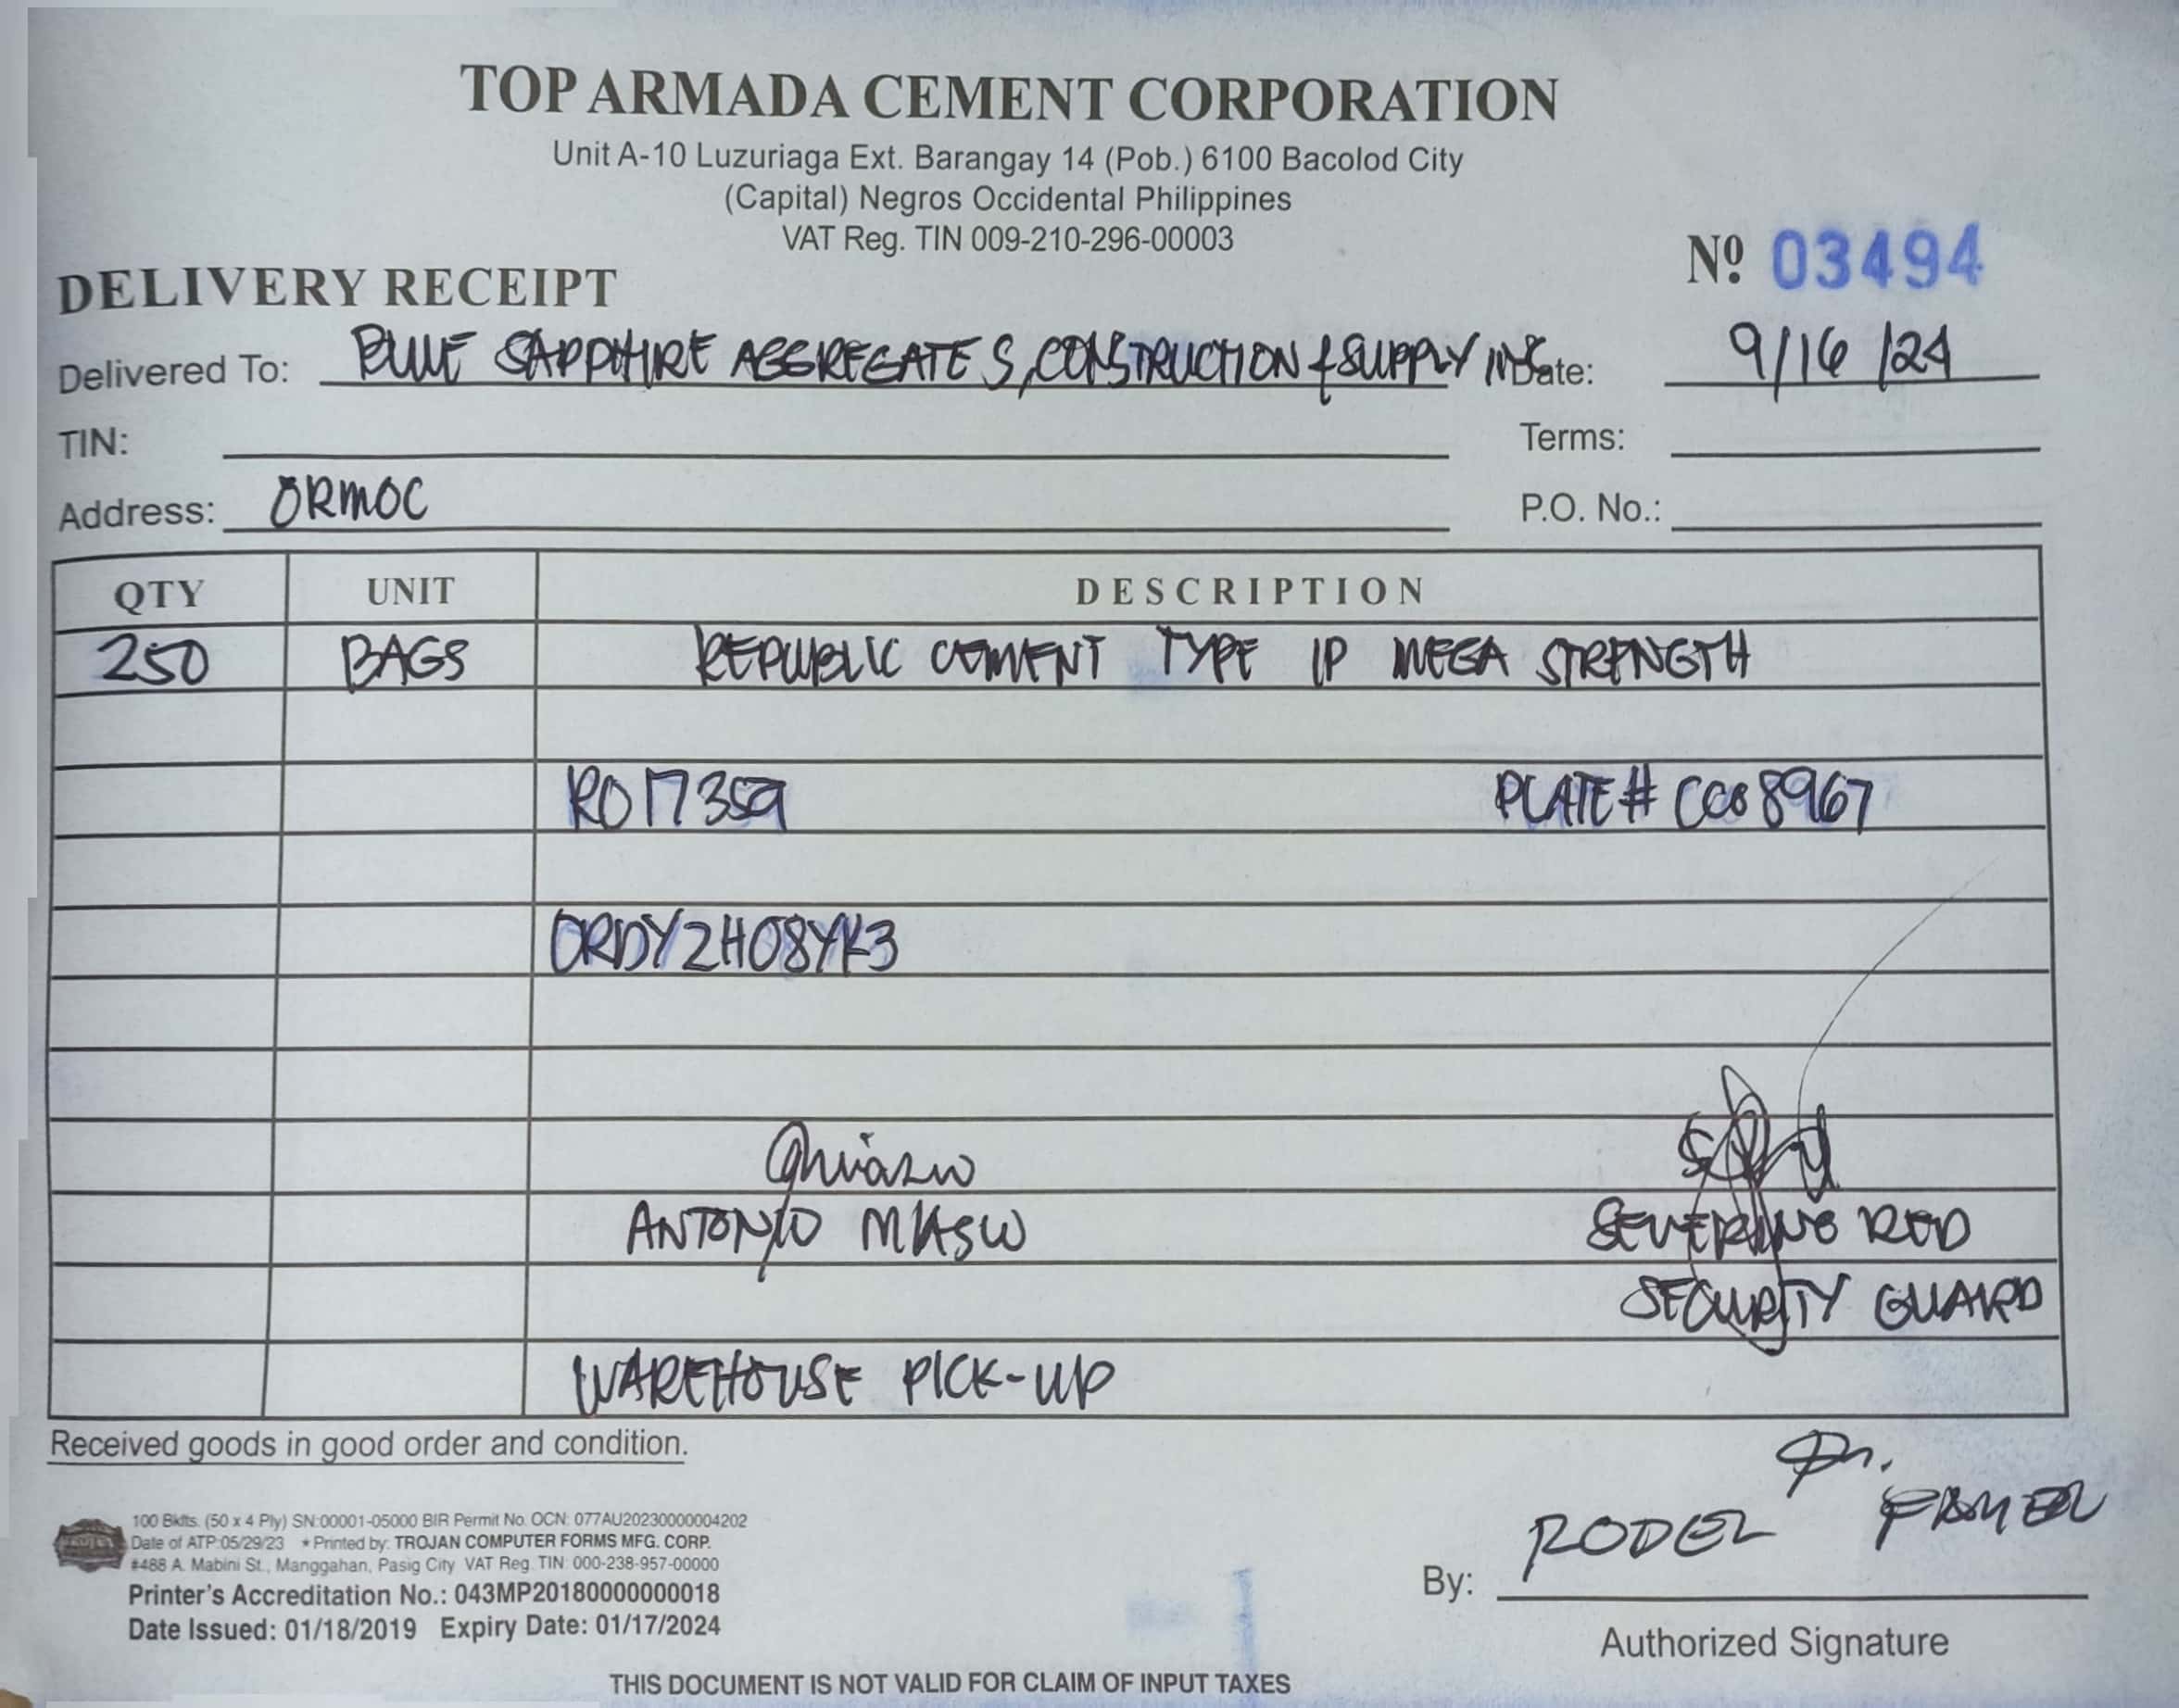 TOP ARMADA CEMENT CORPORATION
Unit A-10 Luzuriaga Ext. Barangay 14 (Pob.) 6100 Bacolod City
(Capital) Negros Occidental Philippines
VAT Reg. TIN 009-210-296-00003
Nº 03494
DELIVERY RECEIPT
Delivered To: BLUE SAPPHIRE AGGREGATES, CONSTRUCTION & SUPPLY INC Date: 9/16/24
TIN: Terms:
Address: ORMOC P.O. No.:
QTY UNIT DESCRIPTION
250 BAGS REPUBLIC CEMENT TYPE IP MEGA STRENGTH
RO17359 PLATE# CCO8967
ORDY2H08YK3
ANTONIO SEVERINO RED
SECURITY GUARD
WAREHOUSE PICK-UP
Received goods in good order and condition.
100 Bklts. (50 x 4 Ply) SN:00001-05000 BIR Permit No. OCN: 077AU20230000004202
Date of ATP:05/29/23 * Printed by: TROJAN COMPUTER FORMS MFG. CORP.
#488 A. Mabini St., Manggahan, Pasig City VAT Reg. TIN: 000-238-957-00000
Printer's Accreditation No.: 043MP20180000000018
Date Issued: 01/18/2019 Expiry Date: 01/17/2024
By: RODEL
Authorized Signature
THIS DOCUMENT IS NOT VALID FOR CLAIM OF INPUT TAXES